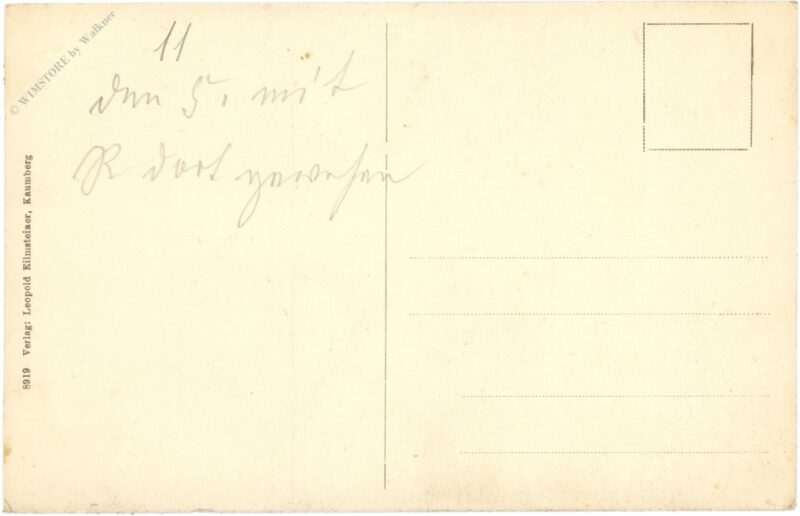 © WIMSTORE by Walkner
11
den 5. mit
R dort gewesen
8919 Verlag: Leopold Eilmsteiner, Kaumberg